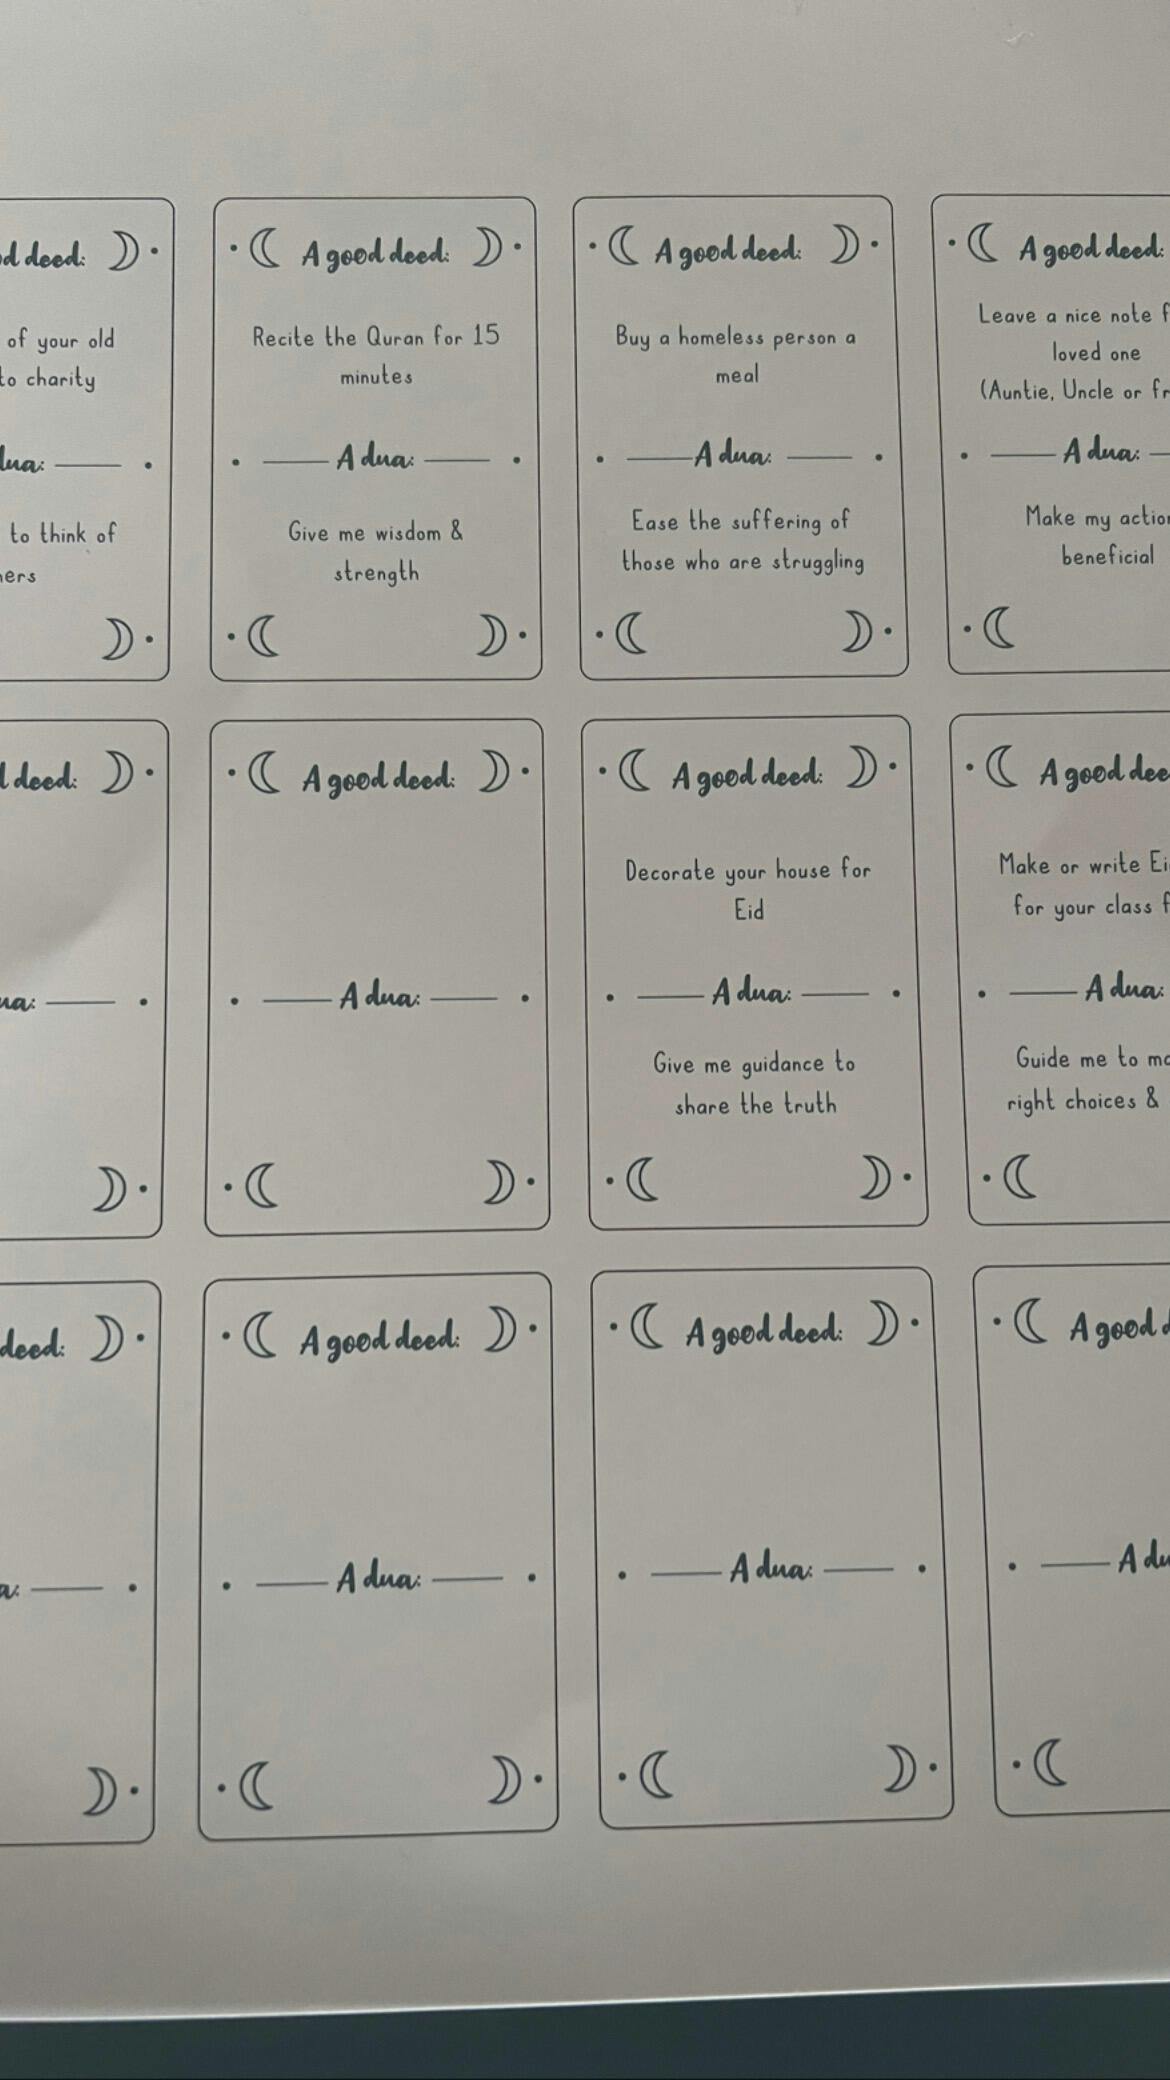 d deed:
of your old
to charity
dua:
to think of
ers
A good deed:
Recite the Quran for 15
minutes
A dua:
Give me wisdom &
strength
A good deed:
Buy a homeless person a
meal
A dua:
Ease the suffering of
those who are struggling
A good deed:
Leave a nice note f
loved one
(Auntie, Uncle or fr
A dua:
Make my action
beneficial
deed:
ua:
A good deed:
A dua:
A good deed:
Decorate your house for
Eid
A dua:
Give me guidance to
share the truth
A good dee
Make or write Ei
for your class f
A dua:
Guide me to ma
right choices &
deed:
a:
A good deed:
A dua:
A good deed:
A dua:
A good d
A du